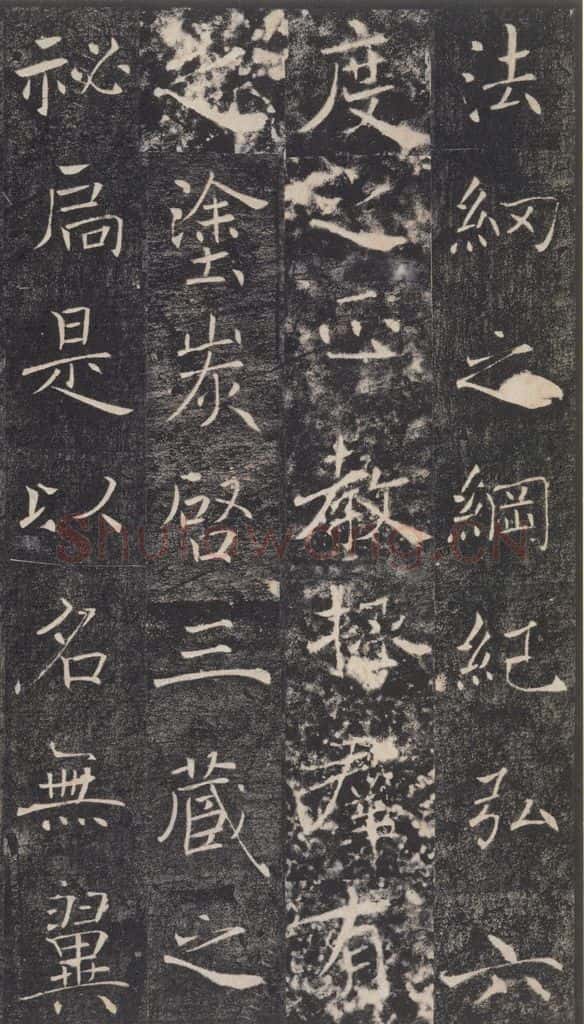 法網之綱紀弘六
度之正教拯群有
之塗炭啓三藏之
祕扃是以名無翼
Shufawang.CN